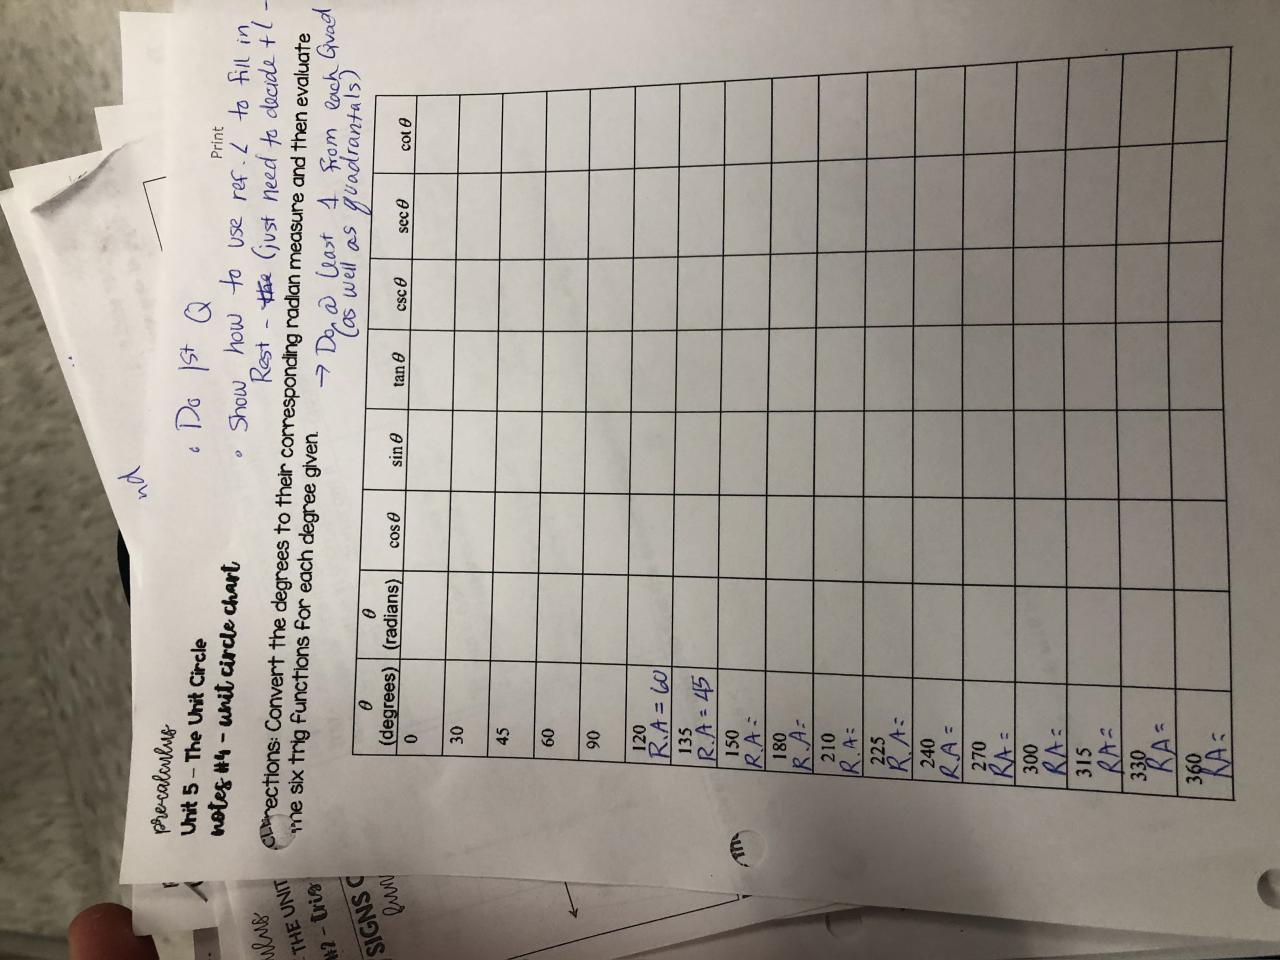 nd
Print
pre-calculus
Unit 5 – The Unit Circle
notes #4 – unit circle chart
• Do 1st Q
• Show how to use ref. ∠ to fill in
Rest - the (just need to decide +/-
Directions: Convert the degrees to their corresponding radian measure and then evaluate
the six trig functions for each degree given.
→ Do @ least 1 from each Quad
(as well as quadrantals)
θ (degrees) θ (radians) cos θ sin θ tan θ csc θ sec θ cot θ
0
30
45
60
90
120
R.A = 60
135
R.A = 45
150
R.A =
180
R.A =
210
R.A =
225
R.A =
240
R.A =
270
RA =
300
RA =
315
RA =
330
RA =
360
RA =
THE UNIT
SIGNS